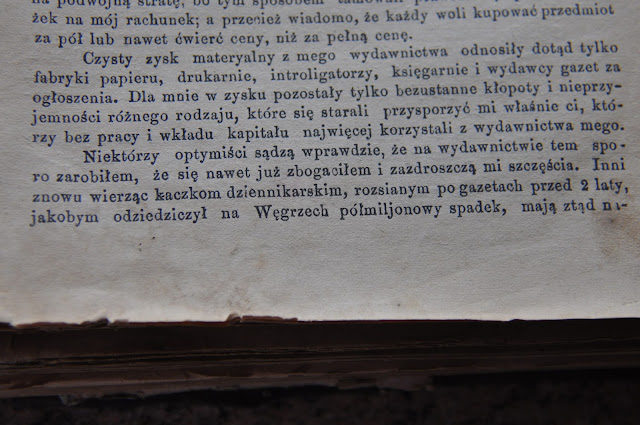 na podwójną stratę, bo tym sposobem
żek na mój rachunek; a przecież wiadomo, że każdy woli kupować przedmiot
za pół lub nawet ćwierć ceny, niż za pełną cenę.
Czysty zysk materyalny z mego wydawnictwa odnosiły dotąd tylko
fabryki papieru, drukarnie, introligatorzy, księgarnie i wydawcy gazet za
ogłoszenia. Dla mnie w zysku pozostały tylko bezustanne kłopoty i nieprzy-
jemności różnego rodzaju, które się starali przysporzyć mi właśnie ci, któ-
rzy bez pracy i wkładu kapitału najwięcej korzystali z wydawnictwa mego.
Niektórzy optymiści sądzą wprawdzie, że na wydawnictwie tem spo-
ro zarobiłem, że się nawet już zbogaciłem i zazdroszczą mi szczęścia. Inni
znowu wierząc kaczkom dziennikarskim, rozsianym po gazetach przed 2 laty,
jakobym odziedziczył na Węgrzech półmiljonowy spadek, mają ztąd